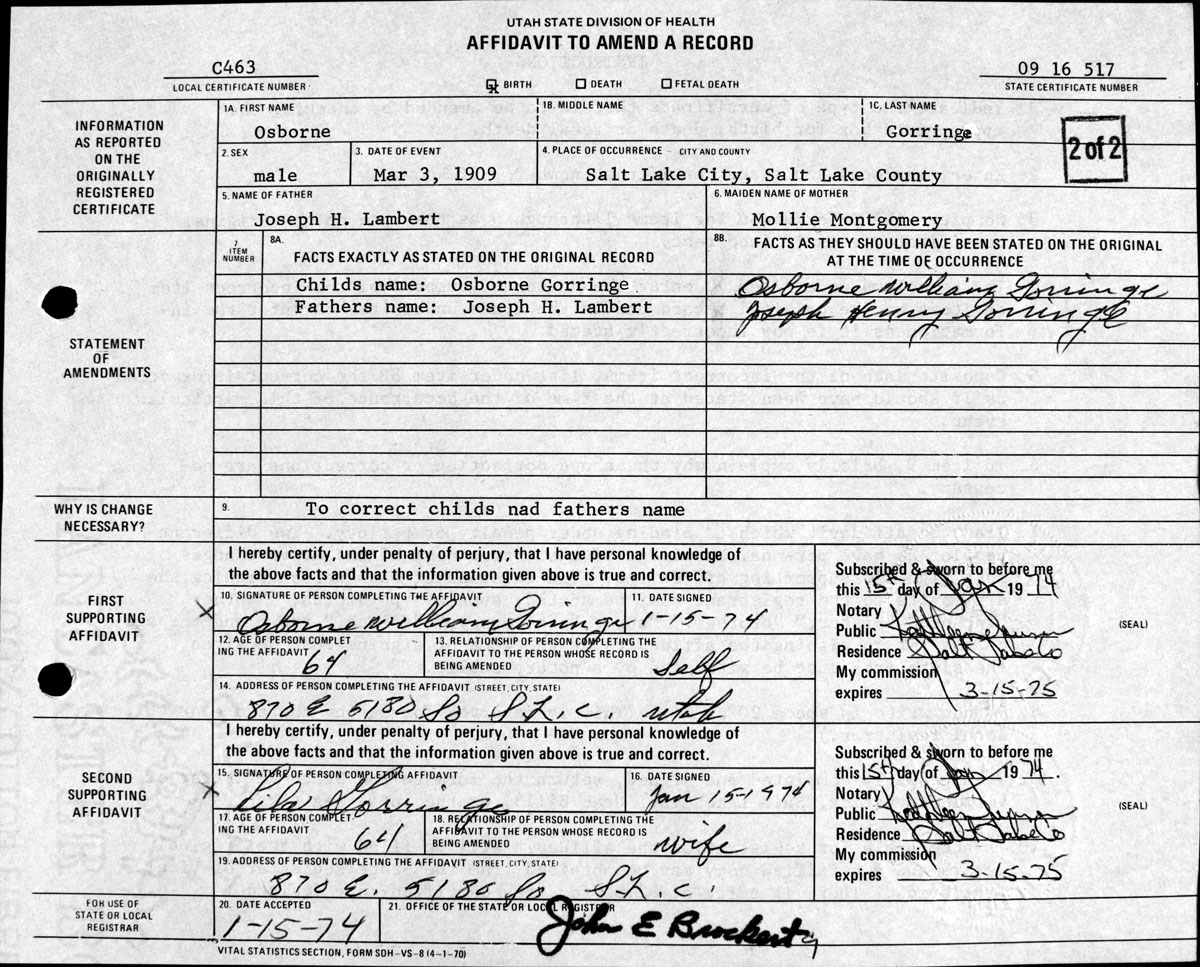 UTAH STATE DIVISION OF HEALTH
AFFIDAVIT TO AMEND A RECORD
C463
LOCAL CERTIFICATE NUMBER
X BIRTH DEATH FETAL DEATH
09 16 517
STATE CERTIFICATE NUMBER
INFORMATION AS REPORTED ON THE ORIGINALLY REGISTERED CERTIFICATE
1A. FIRST NAME 1B. MIDDLE NAME 1C. LAST NAME
Osborne Gorringe
2 of 2
2. SEX 3. DATE OF EVENT 4. PLACE OF OCCURRENCE - CITY AND COUNTY
male Mar 3, 1909 Salt Lake City, Salt Lake County
5. NAME OF FATHER 6. MAIDEN NAME OF MOTHER
Joseph H. Lambert Mollie Montgomery
STATEMENT OF AMENDMENTS
7 ITEM NUMBER
8A. FACTS EXACTLY AS STATED ON THE ORIGINAL RECORD
8B. FACTS AS THEY SHOULD HAVE BEEN STATED ON THE ORIGINAL AT THE TIME OF OCCURRENCE
Childs name: Osborne Gorringe Osborne William Gorringe
Fathers name: Joseph H. Lambert Joseph Henry Gorringe
WHY IS CHANGE NECESSARY?
9. To correct childs nad fathers name
FIRST SUPPORTING AFFIDAVIT
I hereby certify, under penalty of perjury, that I have personal knowledge of
the above facts and that the information given above is true and correct.
10. SIGNATURE OF PERSON COMPLETING THE AFFIDAVIT 11. DATE SIGNED
X Osborne William Gorringe 1-15-74
12. AGE OF PERSON COMPLETING THE AFFIDAVIT 64
13. RELATIONSHIP OF PERSON COMPLETING THE AFFIDAVIT TO THE PERSON WHOSE RECORD IS BEING AMENDED Self
14. ADDRESS OF PERSON COMPLETING THE AFFIDAVIT (STREET, CITY, STATE)
870 E 5180 So S.L.C. Utah
Subscribed & sworn to before me
this 15th day of Jan 19 74
Notary
Public Kathleen
Residence Salt Lake Co
My commission
expires 3-15-75
(SEAL)
SECOND SUPPORTING AFFIDAVIT
I hereby certify, under penalty of perjury, that I have personal knowledge of
the above facts and that the information given above is true and correct.
15. SIGNATURE OF PERSON COMPLETING AFFIDAVIT 16. DATE SIGNED
X Lila Gorringe Jan 15-1974
17. AGE OF PERSON COMPLETING THE AFFIDAVIT 64
18. RELATIONSHIP OF PERSON COMPLETING THE AFFIDAVIT TO THE PERSON WHOSE RECORD IS BEING AMENDED wife
19. ADDRESS OF PERSON COMPLETING THE AFFIDAVIT (STREET, CITY, STATE)
870 E. 5180 So S.L.C.
Subscribed & sworn to before me
this 15th day of Jan 19 74.
Notary
Public Kathleen
Residence Salt Lake Co
My commission
expires 3-15-75
(SEAL)
FOR USE OF STATE OR LOCAL REGISTRAR
20. DATE ACCEPTED 21. OFFICE OF THE STATE OR LOCAL REGISTRAR
1-15-74 John E Brockert
VITAL STATISTICS SECTION, FORM SDH-VS-8 (4-1-70)